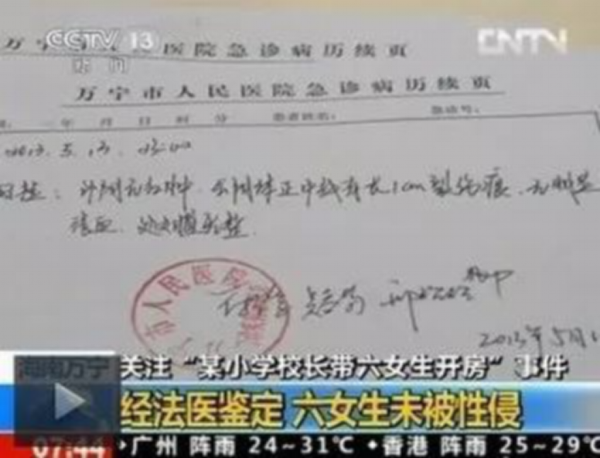 CCTV 13
新闻
CNTV
万宁市人民医院急诊病历续页
万宁市人民医院急诊病历续页
年 月 日 时 分 患者姓名:
2013.5.13. 03:00
外阴无红肿. 正中线有长1cm裂伤痕. 无明显
渗血. 处女膜完整.
市人民医院
2013年5月1
海南万宁 关注“某小学校长带六女生开房”事件
经法医鉴定 六女生未被性侵
07:44 •广州 阵雨 24~31℃ •香港 阵雨 25~29℃